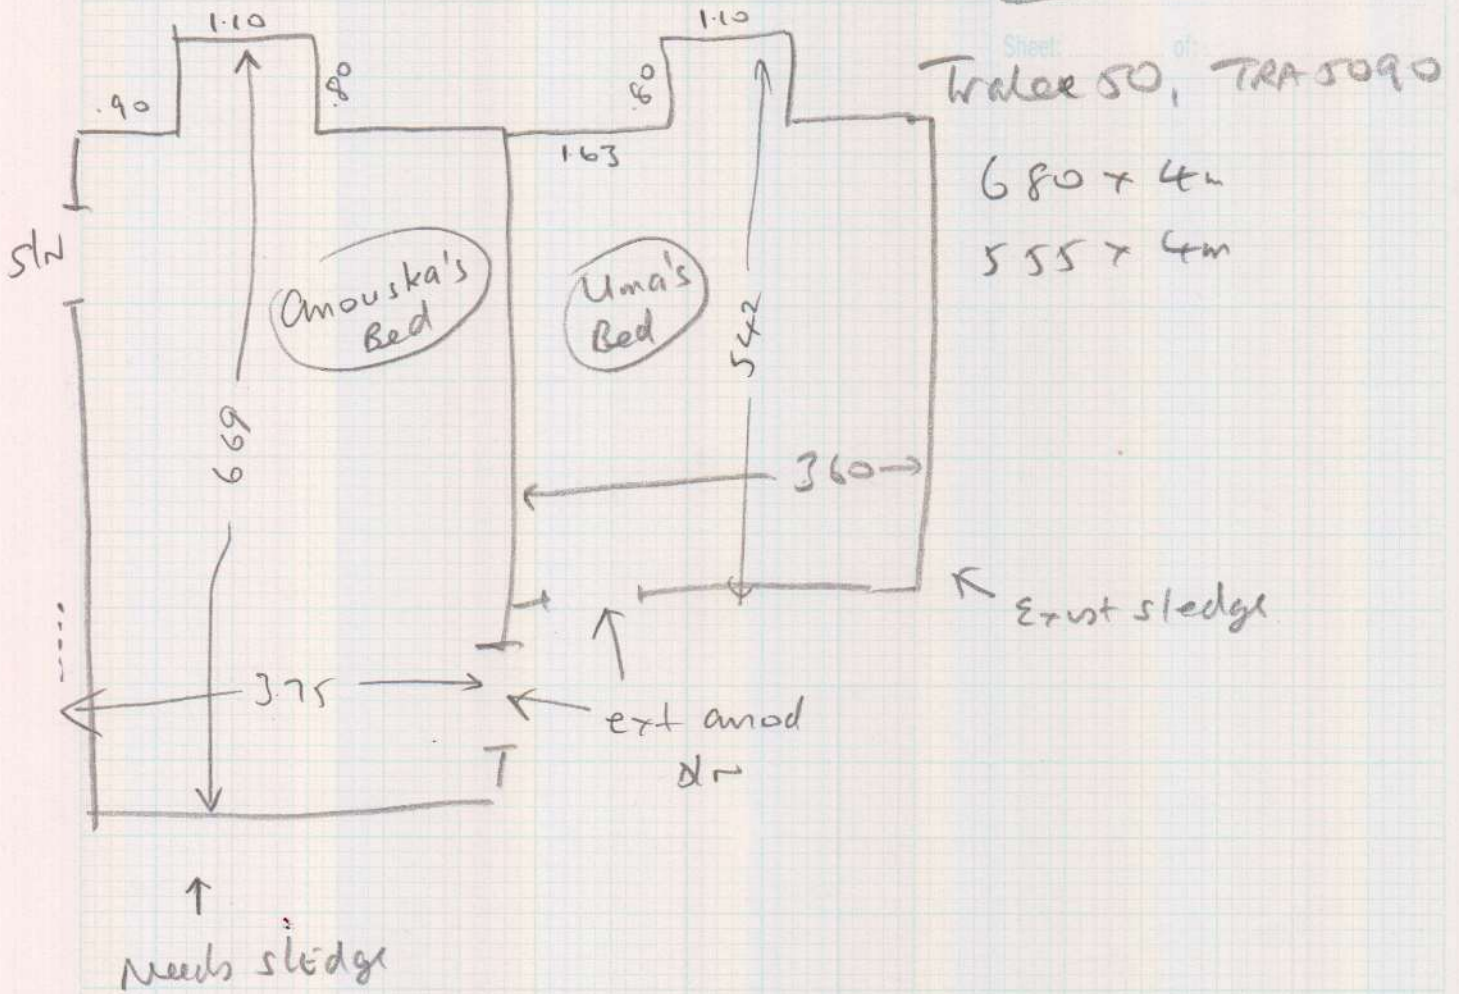 1.10
1.10
Sheet: of:
.90
.80
.80
Tralee 50, TRA5090
1.63
680 x 4m
555 x 4m
S/N
Anouska's
Bed
Uma's
Bed
542
669
360
Exist sledge
3.75
ext anod
dr
Needs sledge